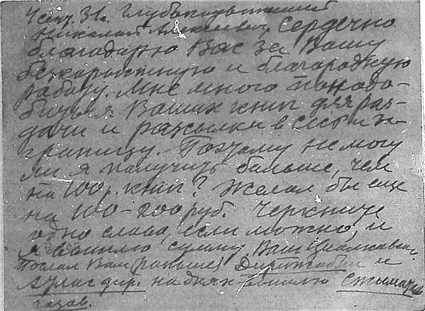 Глубокоуважаемый
Николай Алексеевич Сердечно
благодарю Вас за Вашу
бескорыстную и благородную
работу. Мне много понадо-
бится Ваших книг для раз-
дачи и рассылки в ссылки
границу. Поэтому не могу
ли я получить больше, чем
на 100р. книг? Желал бы еще
на 100-200 руб. Черкните
одно слово, если можно, и
я вышлю сумму Вам
Послал Вам раньше и
на днях вышлю
газов.